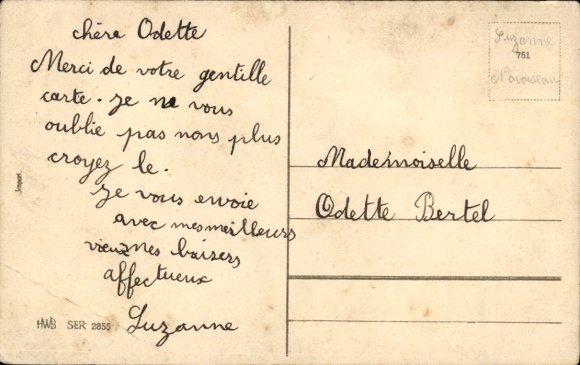 chère Odette
Merci de votre gentille
carte. je ne vous
oublie pas non plus
croyez le.
je vous envoie
avec mes meilleurs
vieux mes baisers
affectueux
Suzanne
HWB SER 2855
Import.
Suzanne
751
Mademoiselle
Odette Bertel